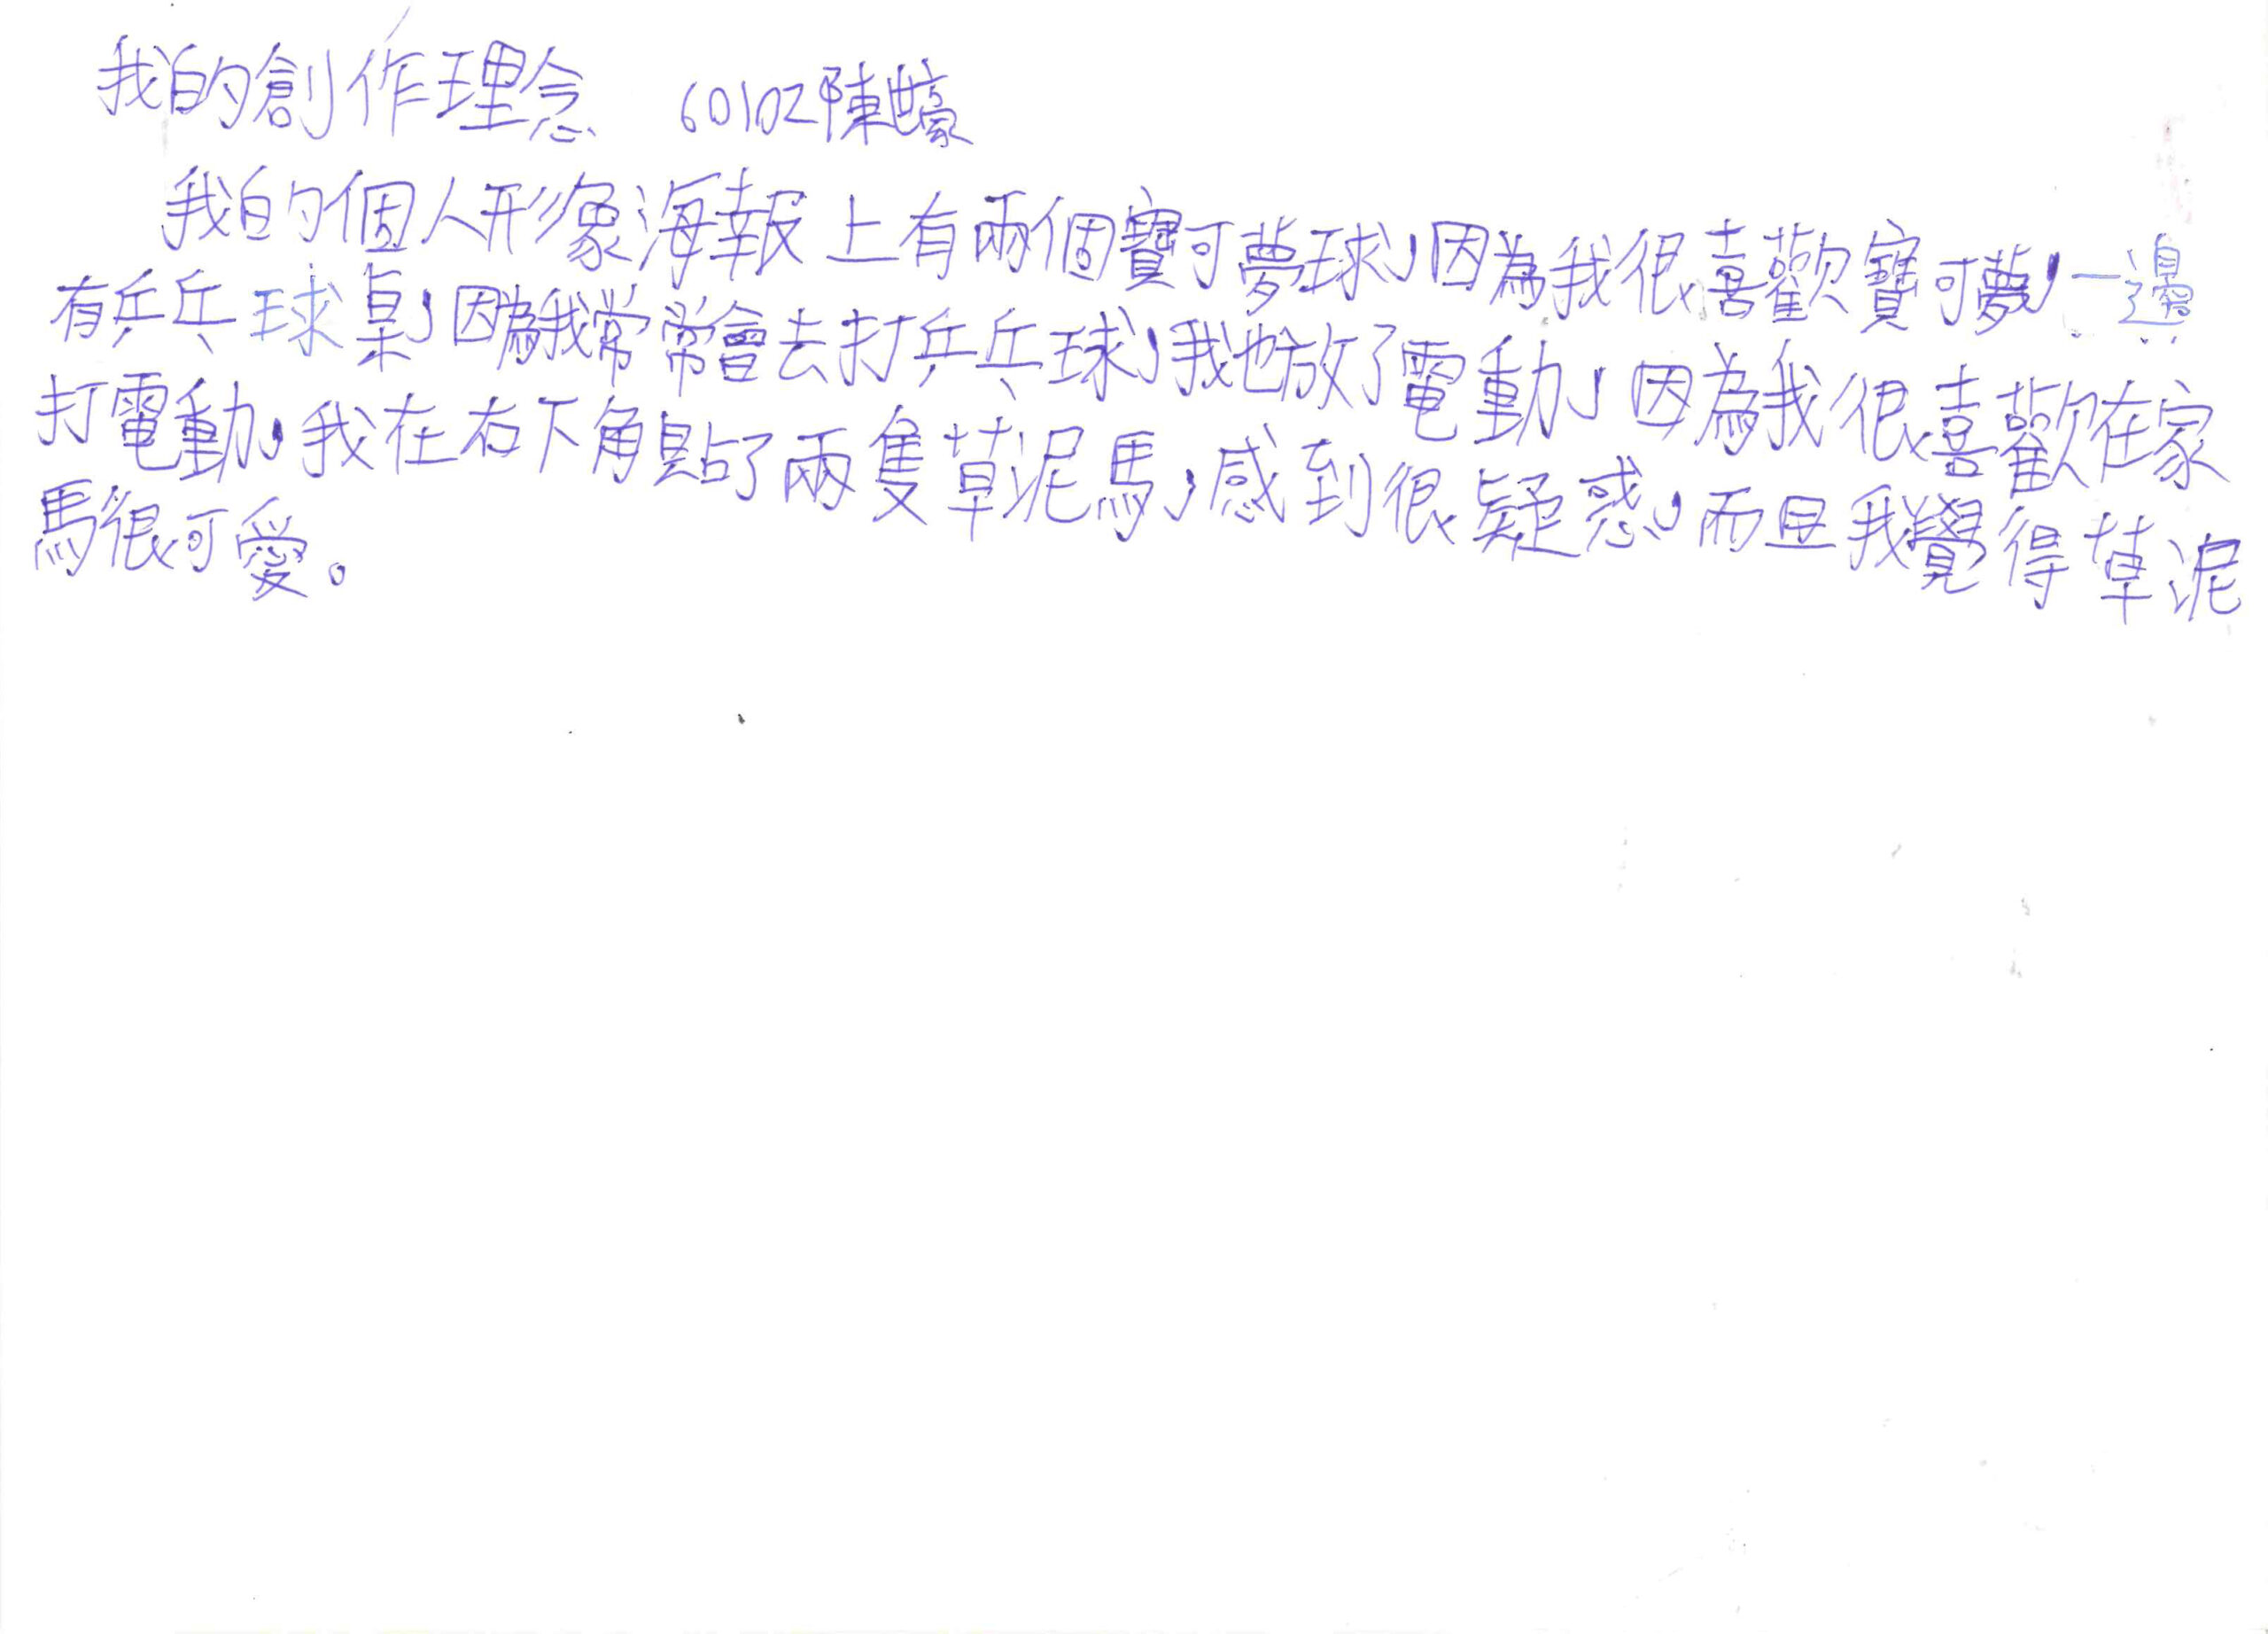 我的創作理念 60102陳世豪
我的個人形象海報上有兩個寶可夢球,因為我很喜歡寶可夢,一邊
有乒乓球桌,因為我常常會去打乒乓球,我也放了電動,因為我很喜歡在家
打電動,我在右下角貼了兩隻草泥馬,感到很疑惑,而且我覺得草泥
馬很可愛。